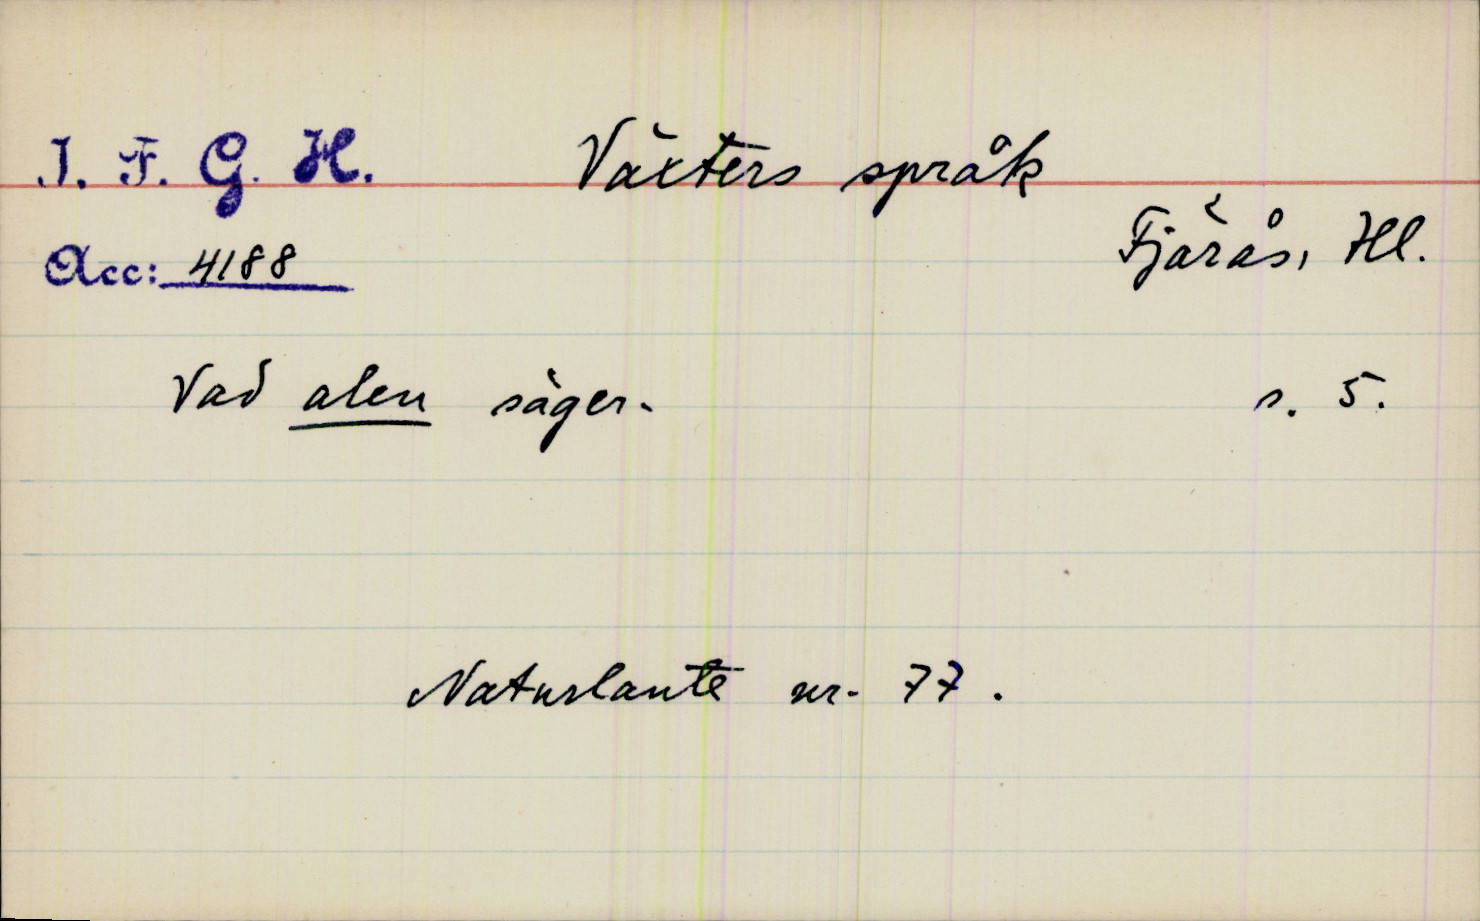 I. F. G. H. Växters språk
Fjärås, Hl.
Acc: 4188
Vad alen säger. s. 5.
Naturlaute nr. 77.